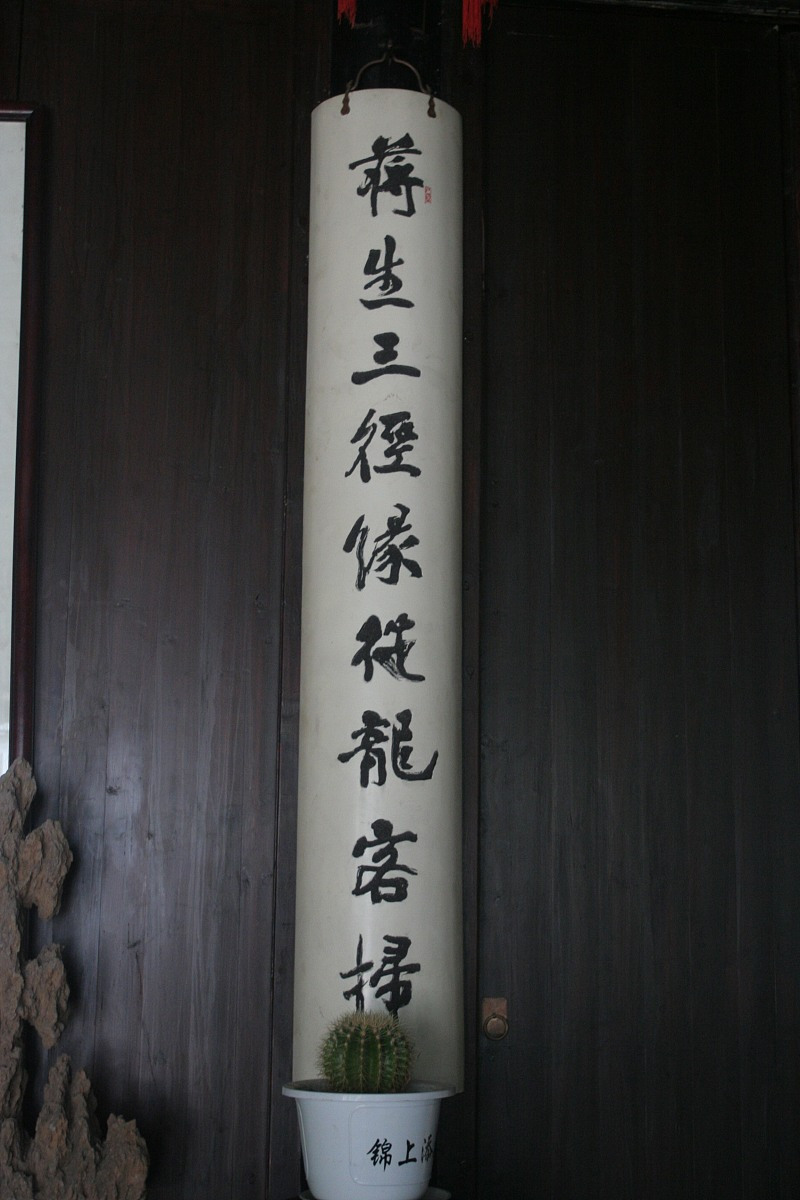 蒋生三徑緣從龍客掃
錦上添